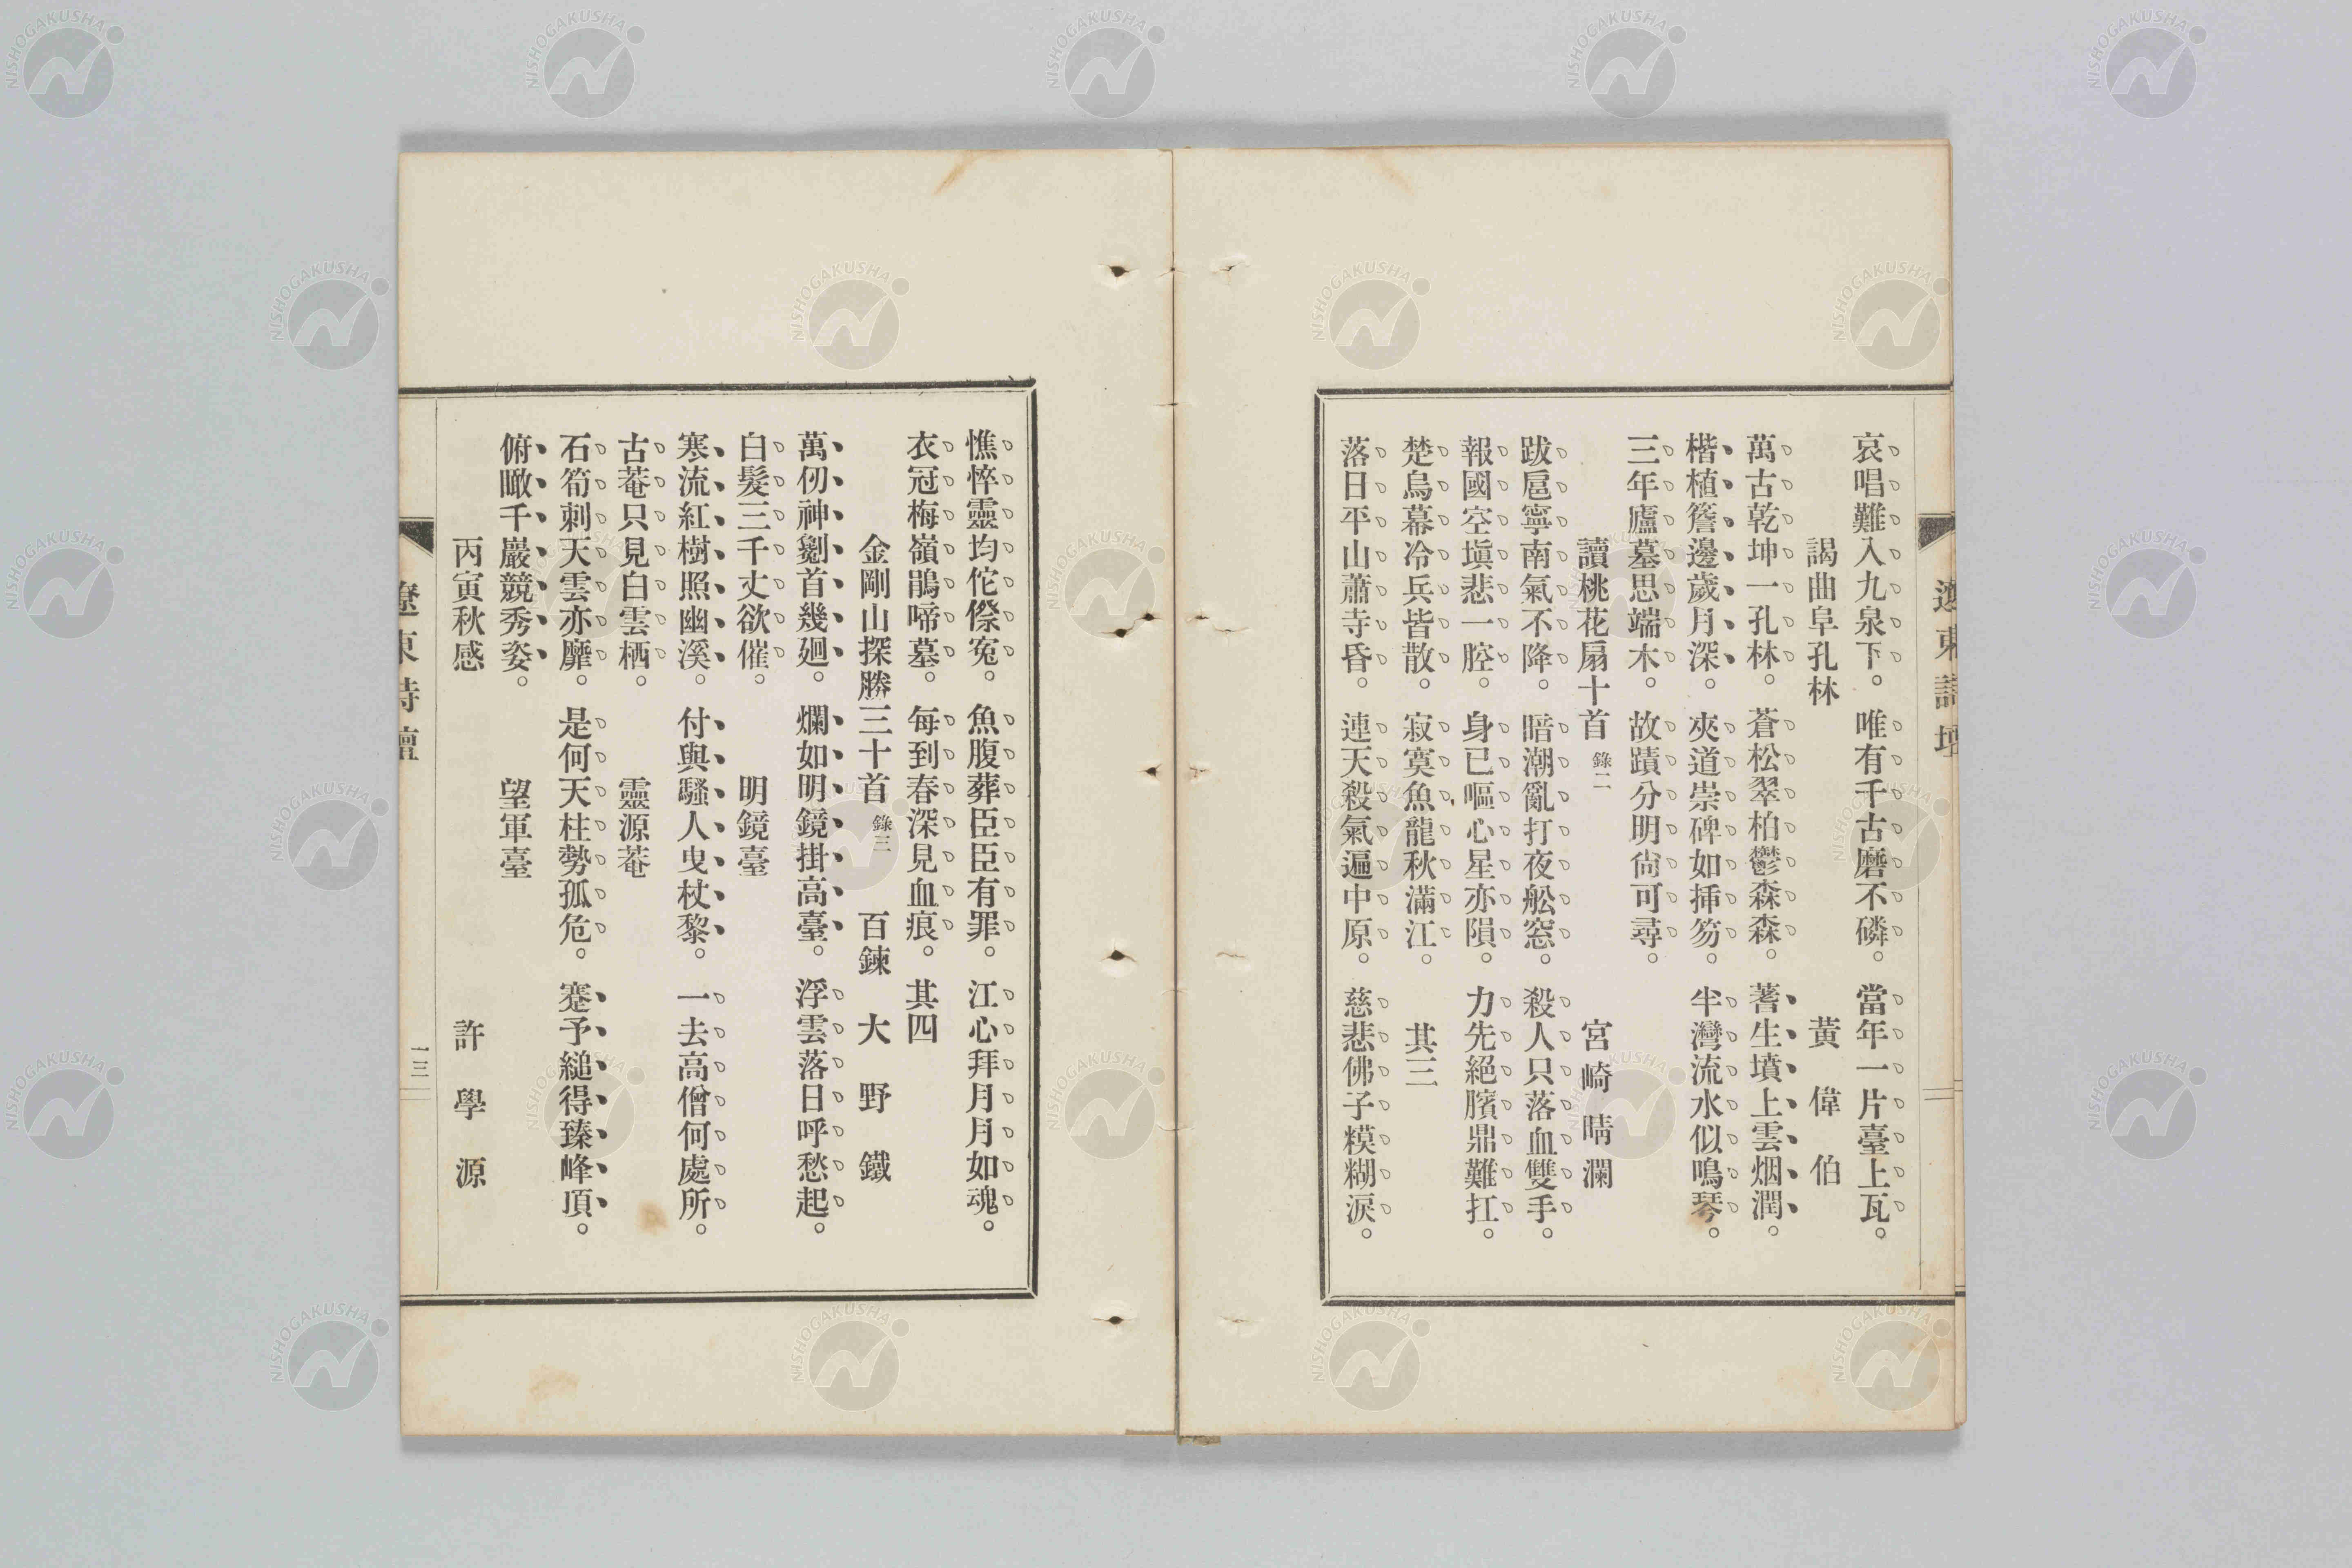 哀唱難入九泉下。唯有千古磨不磷。當年一片臺上瓦。
謁曲阜孔林 黃偉伯
萬古乾坤一孔林。蒼松翠柏鬱森森。蓍生墳上雲烟潤。
楷植簷邊歲月深。夾道崇碑如挿笏。半灣流水似鳴琴。
三年廬墓思端木。故蹟分明尙可尋。
讀桃花扇十首 錄二 宮崎晴瀾
跋扈寧南氣不降。暗潮亂打夜舩窓。殺人只落血雙手。
報國空塡悲一腔。身已嘔心星亦隕。力先絕臏鼎難扛。
楚烏幕冷兵皆散。寂寞魚龍秋滿江。 其三
落日平山蕭寺昏。連天殺氣遍中原。慈悲佛子糢糊淚。
憔悴靈均佗傺寃。魚腹葬臣臣有罪。江心拜月月如魂。
衣冠梅嶺鵑啼墓。每到春深見血痕。其四
金剛山探勝三十首 錄三 百鍊 大野鐵
萬仞神劖首幾廻。爛如明鏡掛高臺。浮雲落日呼愁起。
白髮三千丈欲催。 明鏡臺
寒流紅樹照幽溪。付與騷人曳杖黎。一去高僧何處所。
古菴只見白雲栖。 靈源菴
石筍刺天雲亦靡。是何天柱勢孤危。蹇予縋得臻峰頂。
俯瞰千巖競秀姿。 望軍臺
丙寅秋感 許學源
遼東詩壇
一三
遼東詩壇
NISHOGAKUSHA